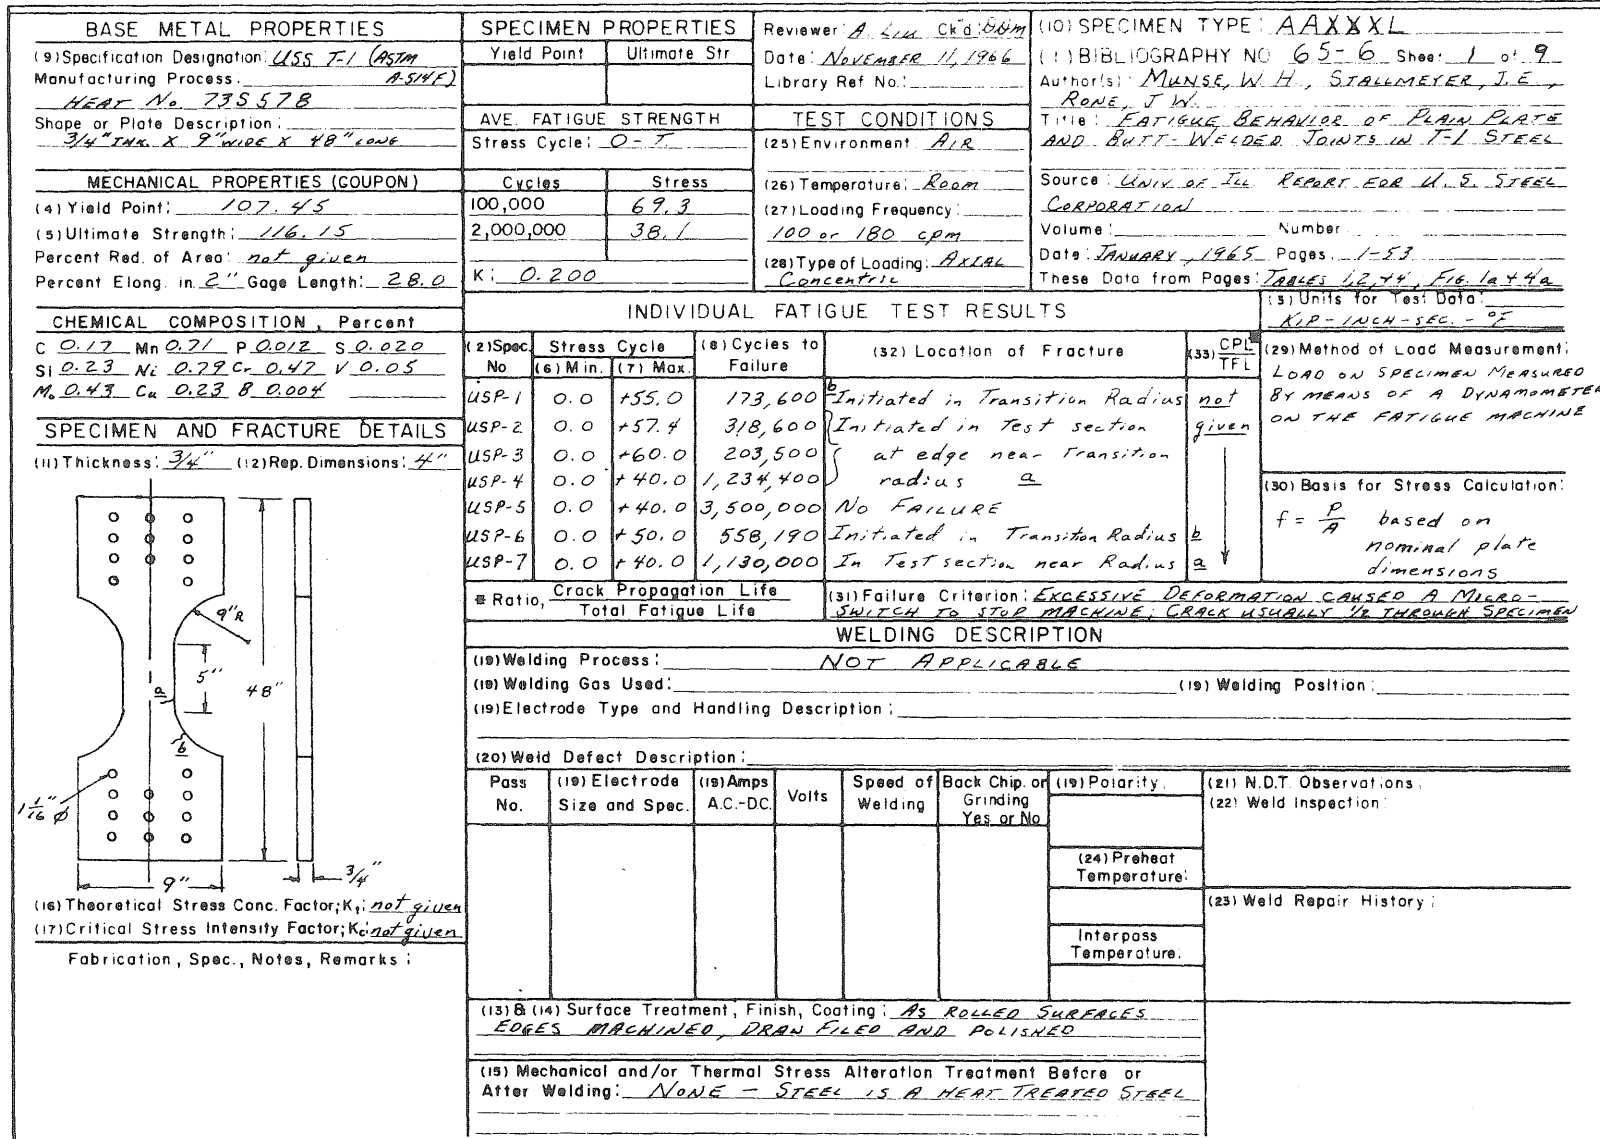 BASE METAL PROPERTIES
(9) Specification Designation: USS T-1 (ASTM
Manufacturing Process: A-514F)
HEAT No. 73S578
Shape or Plate Description:
3/4" THK. X 9" WIDE X 48" LONG
MECHANICAL PROPERTIES (COUPON)
(4) Yield Point: 107.45
(5) Ultimate Strength: 116.15
Percent Red. of Area: not given
Percent Elong. in 2" Gage Length: 28.0
CHEMICAL COMPOSITION, Percent
C 0.17 Mn 0.71 P 0.012 S 0.020
Si 0.23 Ni 0.79 Cr 0.47 V 0.05
Mo 0.43 Cu 0.23 B 0.004
SPECIMEN AND FRACTURE DETAILS
(11) Thickness: 3/4" (12) Rep. Dimensions: 4"
9"R
5"
48"
a
b
1 1/16" ϕ
9"
3/4"
(16) Theoretical Stress Conc. Factor; Kt: not given
(17) Critical Stress Intensity Factor; Kc: not given
Fabrication, Spec., Notes, Remarks:
SPECIMEN PROPERTIES
Yield Point Ultimate Str
AVE. FATIGUE STRENGTH
Stress Cycle: O-T
Cycles Stress
100,000 69.3
2,000,000 38.1
K: 0.200
Reviewer: A. Liu Ck'd: DDM
Date: NOVEMBER 11, 1966
Library Ref No.:
TEST CONDITIONS
(25) Environment: AIR
(26) Temperature: ROOM
(27) Loading Frequency:
100 or 180 cpm
(28) Type of Loading: AXIAL
Concentric
(10) SPECIMEN TYPE: AAXXXL
(1) BIBLIOGRAPHY NO 65-6 Sheet 1 of 9
Author(s): MUNSE, W. H., STALLMEYER, J. E.,
RONE, J W.
Title: FATIGUE BEHAVIOR OF PLAIN PLATE
AND BUTT-WELDED JOINTS IN T-1 STEEL
Source: UNIV. OF ILL REPORT FOR U. S. STEEL
CORPORATION
Volume: Number
Date: JANUARY, 1965 Pages: 1-53
These Data from Pages: TABLES 1,2,+4, FIG. 1a + 4a
INDIVIDUAL FATIGUE TEST RESULTS
(3) Units for Test Data:
KIP-INCH-SEC.-°F
(2) Spec. No. Stress Cycle (6) Min. (7) Max. (8) Cycles to Failure (32) Location of Fracture (33) CPL TFL
USP-1 0.0 +55.0 173,600 b Initiated in Transition Radius not
USP-2 0.0 +57.4 318,600 Initiated in Test section given
USP-3 0.0 +60.0 203,500 at edge near Transition
USP-4 0.0 +40.0 1,234,400 radius a
USP-5 0.0 +40.0 3,500,000 NO FAILURE
USP-6 0.0 +50.0 558,190 Initiated in Transiton Radius b
USP-7 0.0 +40.0 1,130,000 In Test section near Radius a
(29) Method of Load Measurement:
LOAD ON SPECIMEN MEASURED
BY MEANS OF A DYNAMOMETER
ON THE FATIGUE MACHINE
(30) Basis for Stress Calculation:
f = P/A based on
nominal plate
dimensions
Ratio, Crack Propagation Life
Total Fatigue Life
(31) Failure Criterion: EXCESSIVE DEFORMATION CAUSED A MICRO-
SWITCH TO STOP MACHINE; CRACK USUALLY 1/2 THROUGH SPECIMEN
WELDING DESCRIPTION
(19) Welding Process: NOT APPLICABLE
(18) Welding Gas Used: (19) Welding Position:
(19) Electrode Type and Handling Description:
(20) Weld Defect Description:
Pass No.
(19) Electrode Size and Spec.
(19) Amps A.C.-D.C.
Volts
Speed of Welding
Back Chip. or Grinding Yes or No
(19) Polarity:
(24) Preheat
Temperature:
Interpass
Temperature:
(21) N.D.T. Observations,
(22) Weld Inspection:
(23) Weld Repair History:
(13) & (14) Surface Treatment, Finish, Coating: AS ROLLED SURFACES
EDGES MACHINED, DRAN FILED AND POLISHED
(15) Mechanical and/or Thermal Stress Alteration Treatment Before or
After Welding: NONE - STEEL IS A HEAT TREATED STEEL